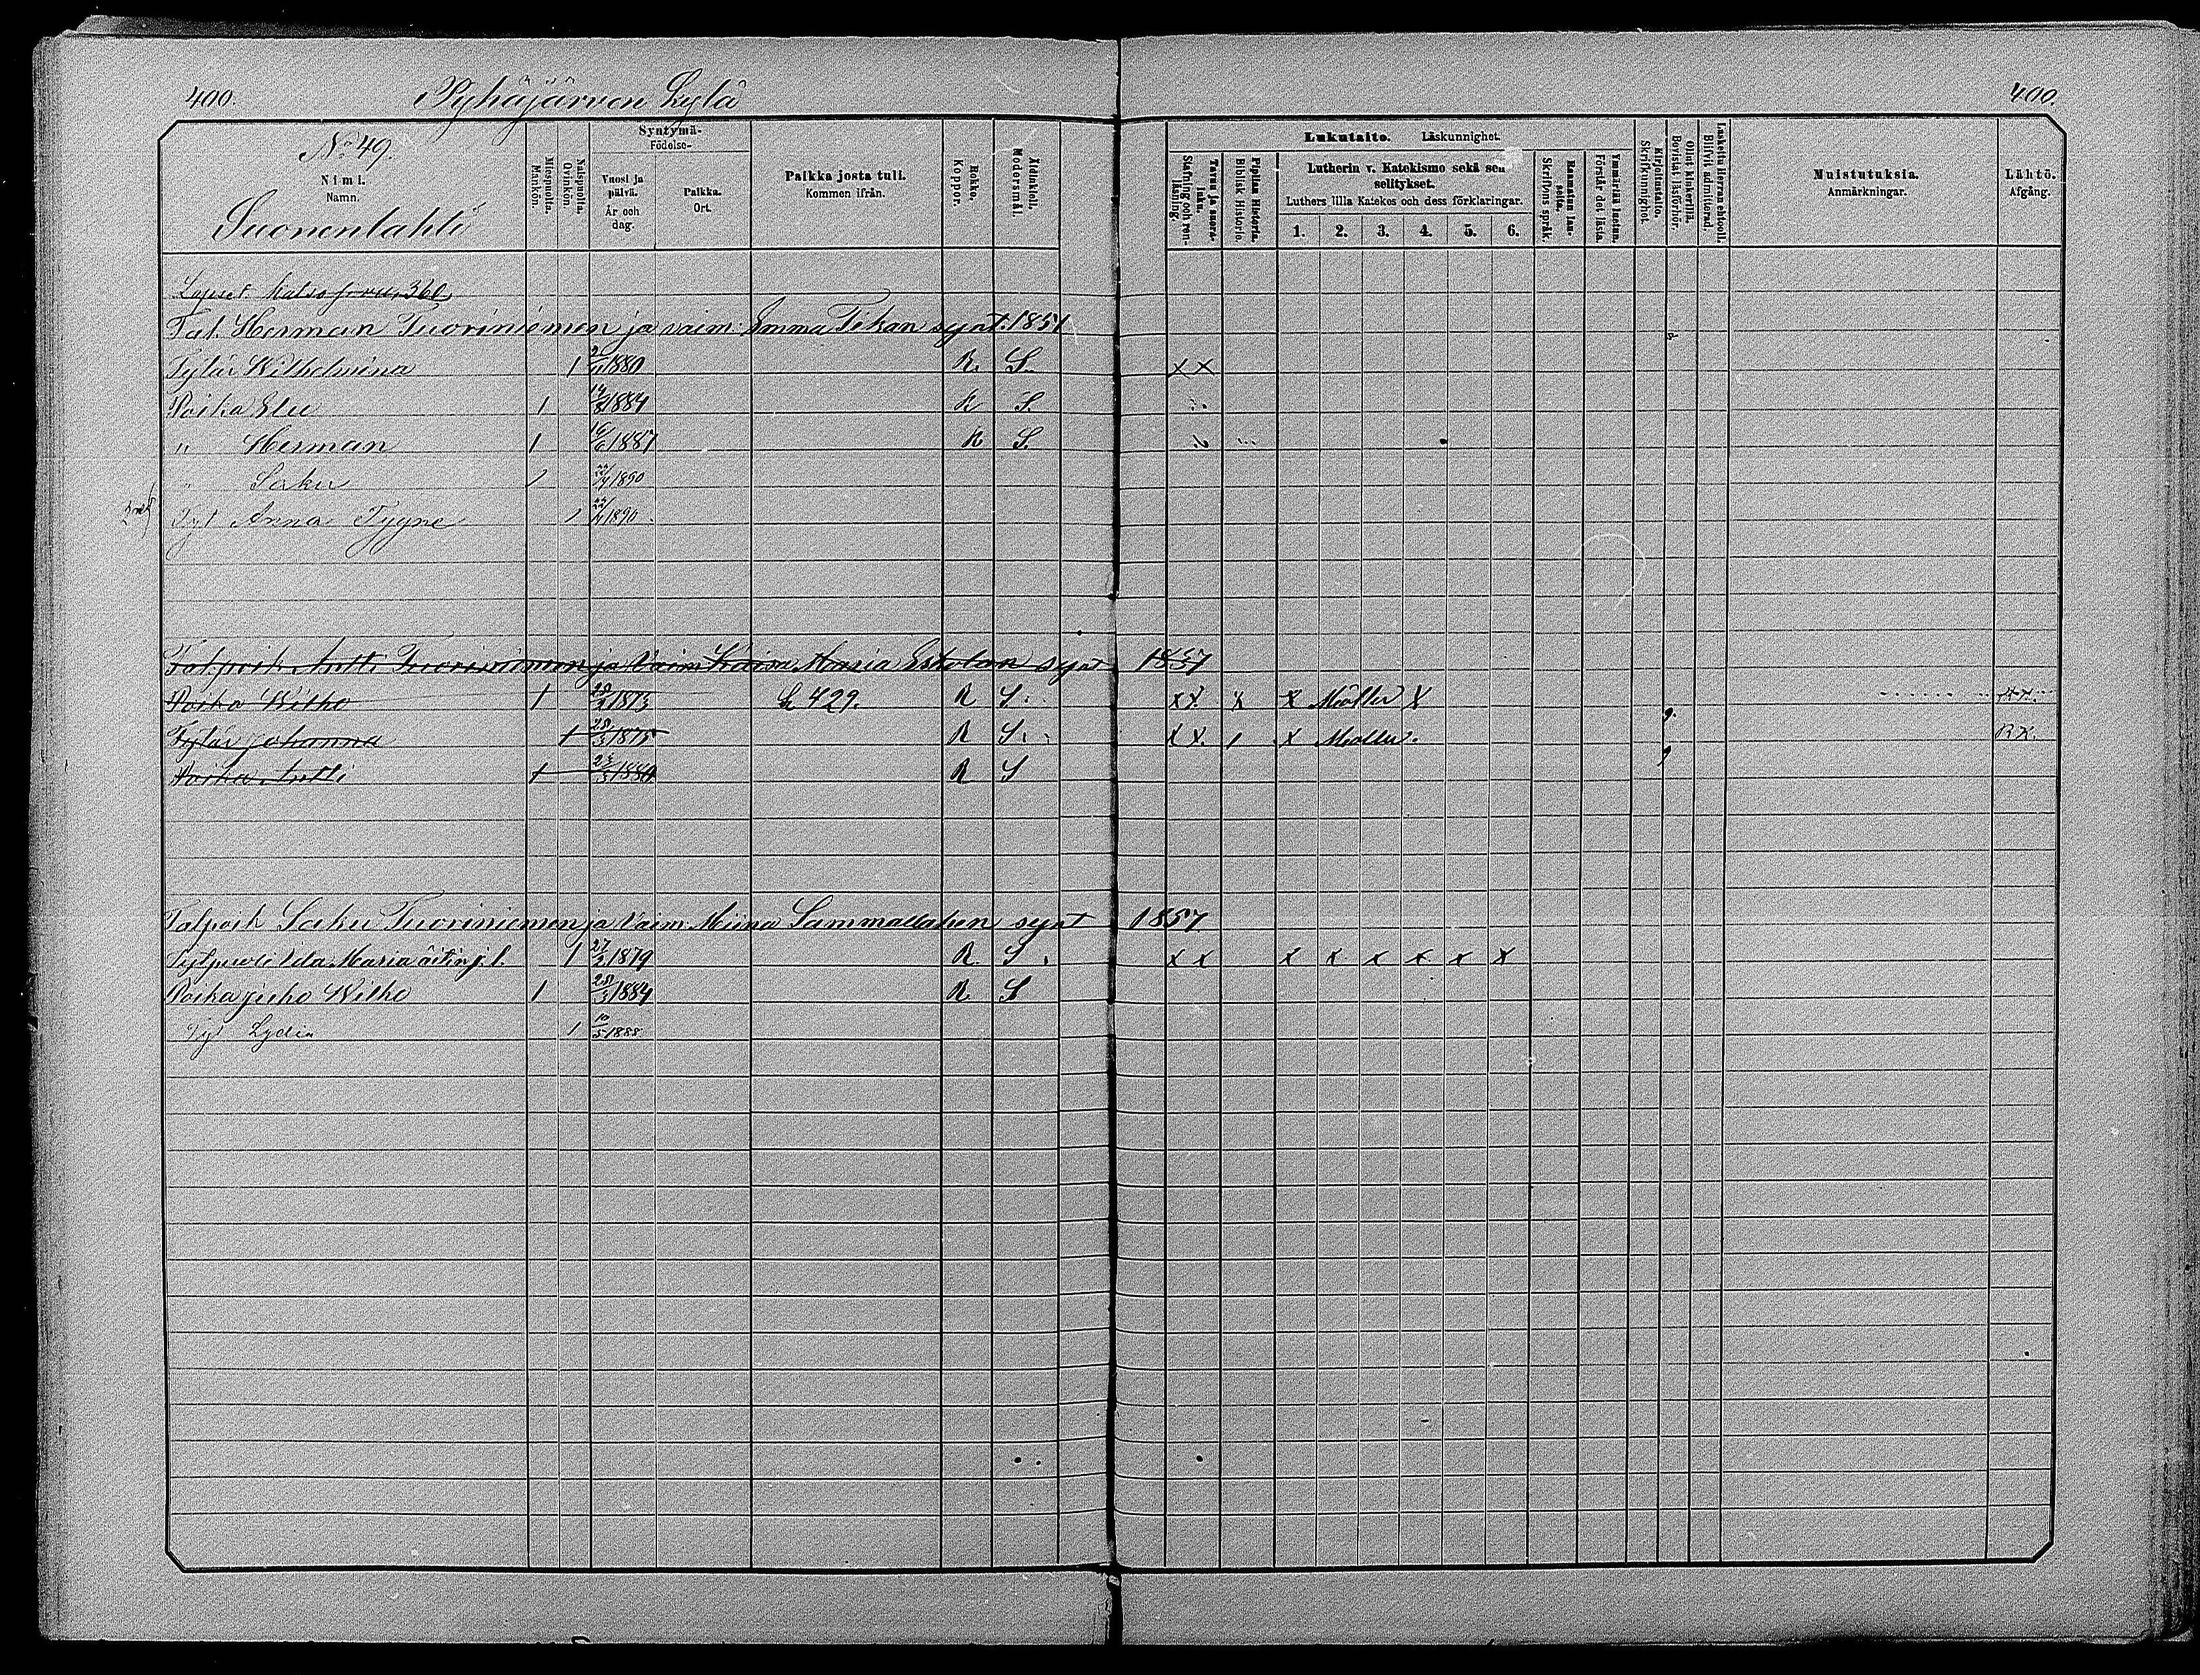 400. Pyhäjärven Kylä 400.
No 49.
Nimi. Namn.
Suonenlahti
Miespuolta. Mankön.
Naispuolta. Qvinkön.
Syntymä- Födelse-
Vuosi ja päivä. År och dag.
Paikka. Ort.
Paikka josta tuli. Kommen ifrån.
Rokko. Koppor.
Äidinkieli. Modersmål.
Lukutaito. Läskunnighet.
Tavuu ja suora- luku. Stafning och ren- läsning.
Piplian Historia. Biblisk Historie.
Lutherin v. Katekismo sekä sen selitykset.
Luthers lilla Katekes och dess förklaringar.
1. 2. 3. 4. 5. 6.
Raamatun lau- seita. Skriftens språk.
Ymmärtää luetun. Förstår det lästa.
Kirjoitustaito. Skrifkunnighet.
Ollut kinkerillä. Bevistat läsförhör.
Laskettu Herran ehtooll. Blifvit admitterad.
Muistutuksia. Anmärkningar.
Lähtö. Afgång.
Lapset katso sivu 360
Tal. Herman Tuoriniemen ja vaim. Emma Tekan synt. 1851
Tytär Wilhelmina 1 1880 R. S. x x
Poika Elu 1 1884 R S.
" Herman 1 16/6 1887 R S.
" Serku 1 1890
Tyt Anna Tyyne 1 1890
Talpoik Antti Tuoriniemen ja Vaim Kaisa Maria Eskolan synt 1857
Poika Wilho 1 1873 429. R S x x x x Möller x
Tytär Johanna 1 28/3 1875 R S x x. 1 x Möller. RK.
Poika Antti 1 1880 R S
Talpoik Saku Tuoriniemen ja Vaim. Miina Sammallahen synt 1857
Tytpuoli Ida Maria äitin j. l. 1 27/3 1879 R S x x x x x x x x
Poika jicho Wilho 1 28/3 1884 R. S
Tyt Lydia 1 10/5 1888.